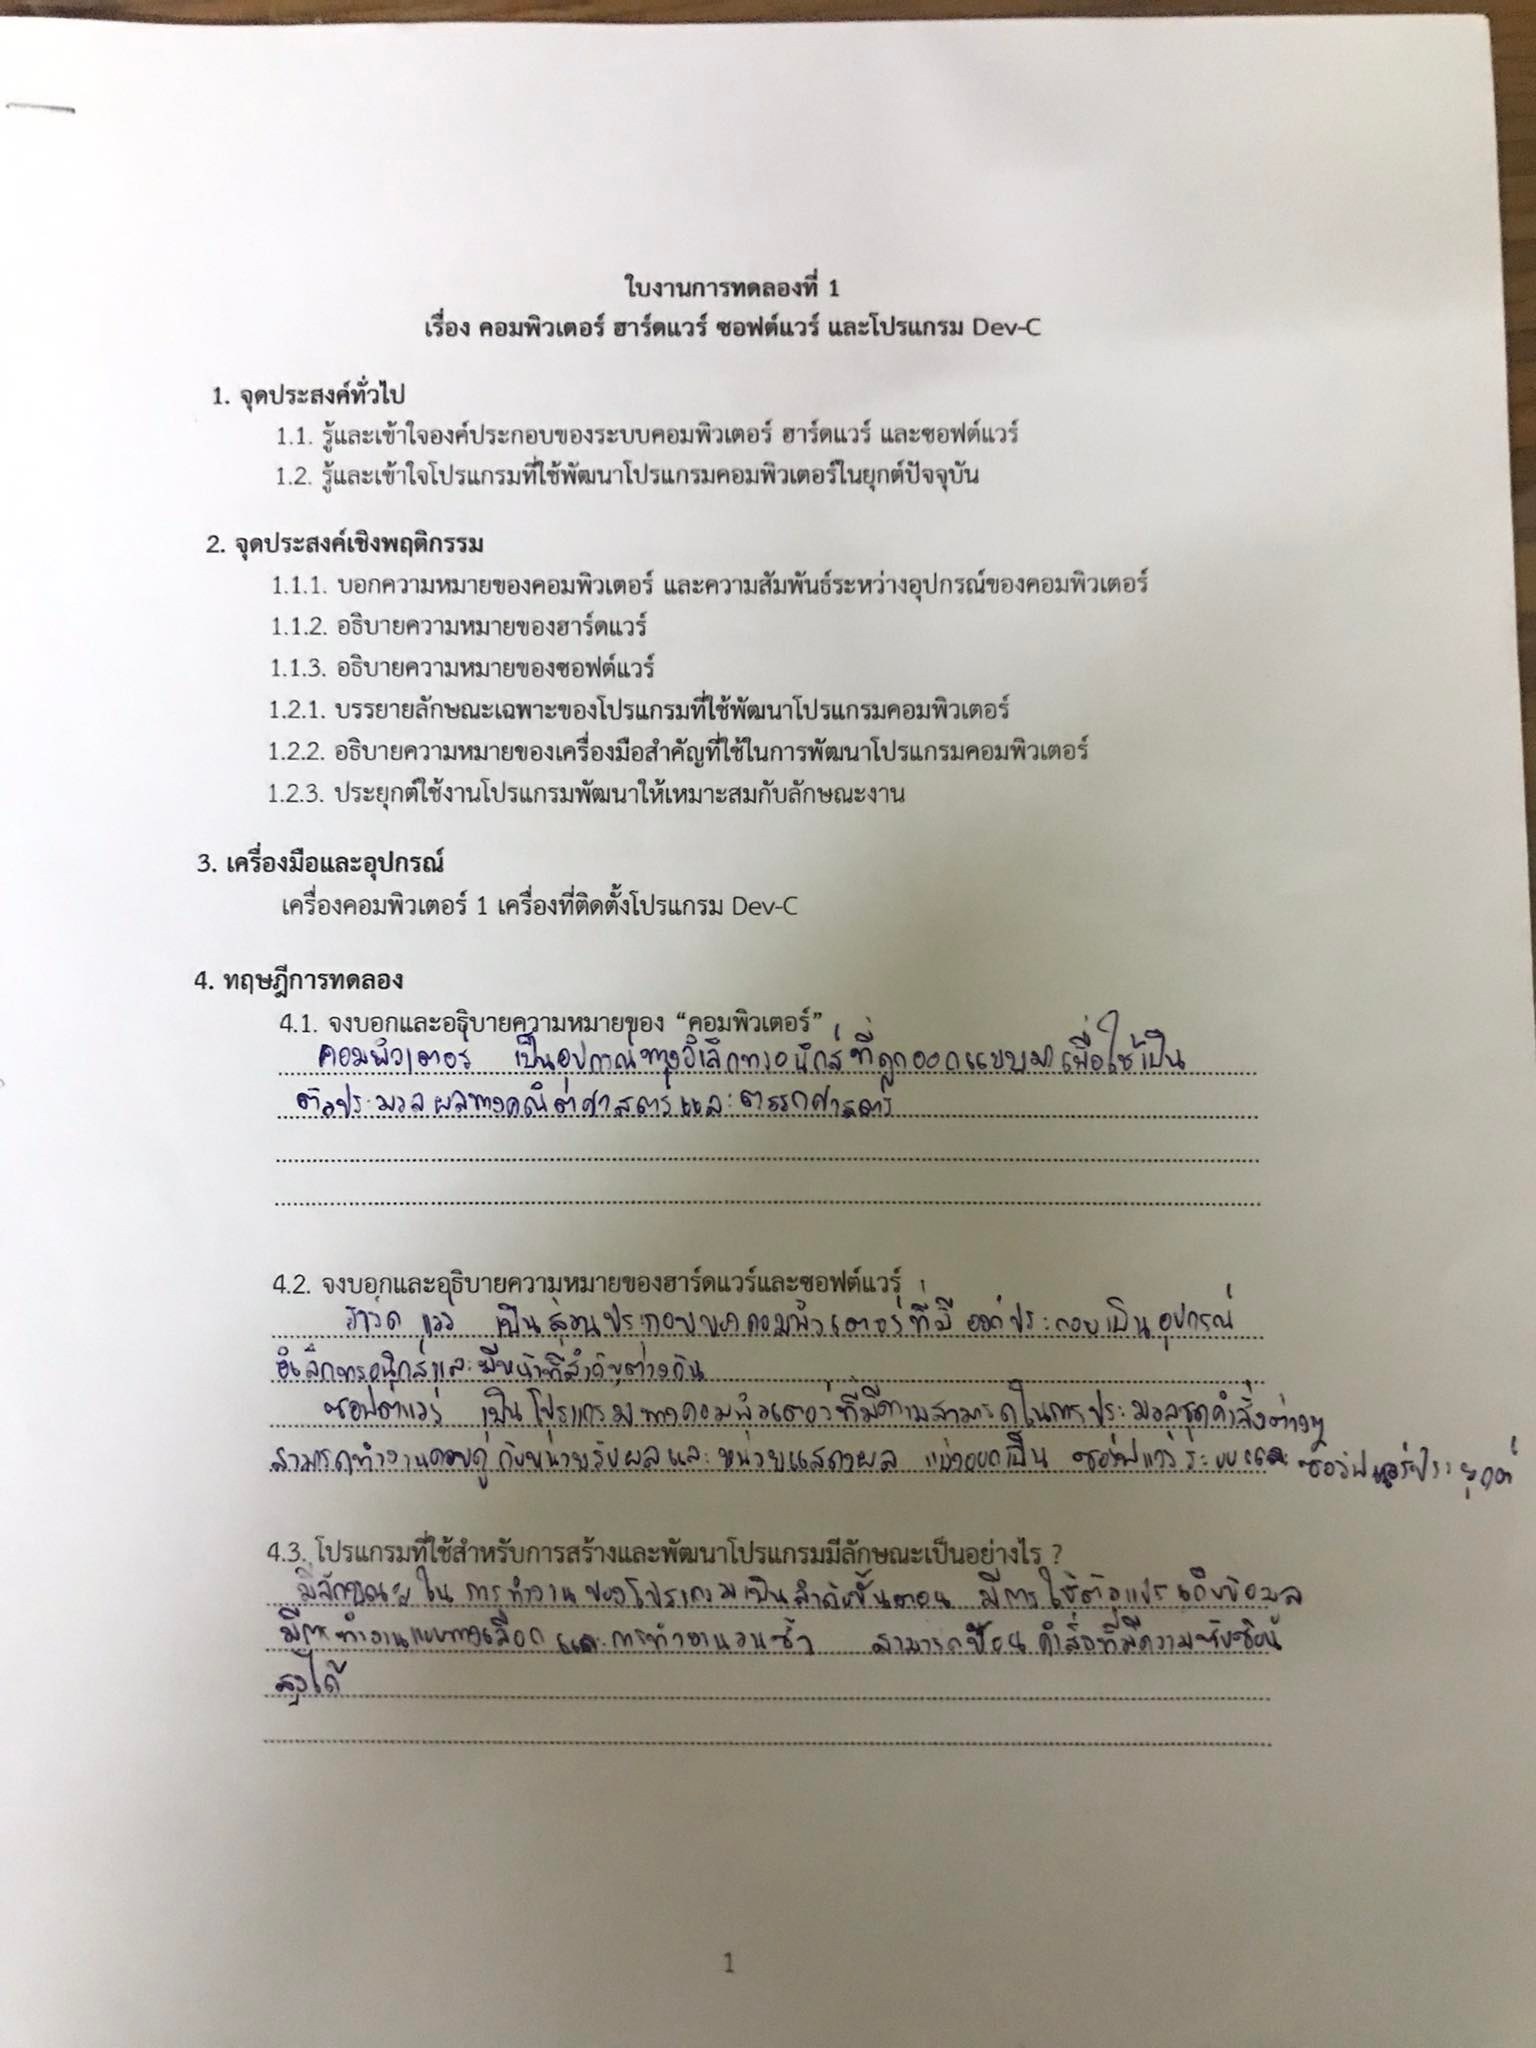 ใบงานการทดลองที่ 1
เรื่อง คอมพิวเตอร์ ฮาร์ดแวร์ ซอฟต์แวร์ และโปรแกรม Dev-C
1. จุดประสงค์ทั่วไป
1.1. รู้และเข้าใจองค์ประกอบของระบบคอมพิวเตอร์ ฮาร์ดแวร์ และซอฟต์แวร์
1.2. รู้และเข้าใจโปรแกรมที่ใช้พัฒนาโปรแกรมคอมพิวเตอร์ในยุกต์ปัจจุบัน
2. จุดประสงค์เชิงพฤติกรรม
1.1.1. บอกความหมายของคอมพิวเตอร์ และความสัมพันธ์ระหว่างอุปกรณ์ของคอมพิวเตอร์
1.1.2. อธิบายความหมายของฮาร์ดแวร์
1.1.3. อธิบายความหมายของซอฟต์แวร์
1.2.1. บรรยายลักษณะเฉพาะของโปรแกรมที่ใช้พัฒนาโปรแกรมคอมพิวเตอร์
1.2.2. อธิบายความหมายของเครื่องมือสำคัญที่ใช้ในการพัฒนาโปรแกรมคอมพิวเตอร์
1.2.3. ประยุกต์ใช้งานโปรแกรมพัฒนาให้เหมาะสมกับลักษณะงาน
3. เครื่องมือและอุปกรณ์
เครื่องคอมพิวเตอร์ 1 เครื่องที่ติดตั้งโปรแกรม Dev-C
4. ทฤษฎีการทดลอง
4.1. จงบอกและอธิบายความหมายของ “คอมพิวเตอร์”
คอมพิวเตอร์ เป็นอุปกรณ์ทางอิเล็กทรอนิกส์ที่ถูกออกแบบมาเพื่อใช้เป็น
ตัวประมวลผลทางคณิตศาสตร์และตรรกศาสตร์
4.2. จงบอกและอธิบายความหมายของฮาร์ดแวร์และซอฟต์แวร์
ฮาร์ดแวร์ เป็นส่วนประกอบของคอมพิวเตอร์ที่มีองค์ประกอบเป็นอุปกรณ์
อิเล็กทรอนิกส์และมีหน้าที่สำคัญต่างกัน
ซอฟต์แวร์ เป็นโปรแกรมทางคอมพิวเตอร์ที่มีความสามารถในการประมวลชุดคำสั่งต่างๆ
สามารถทำงานควบคู่กับหน่วยรับผลและหน่วยแสดงผล แบ่งออกเป็น ซอร์ฟแวร์ระบบและ ซอร์ฟแวร์ประยุกต์
4.3. โปรแกรมที่ใช้สำหรับการสร้างและพัฒนาโปรแกรมมีลักษณะเป็นอย่างไร ?
มีลักษณะในการทำงานของโปรแกรมเป็นลำดับขั้นตอน มีการใช้ตัวแปรเก็บข้อมูล
มีการทำงานแบบทางเลือกและการทำงานวนซ้ำ สามารถป้อนคำสั่งที่มีความซับซ้อน
สูงได้
1